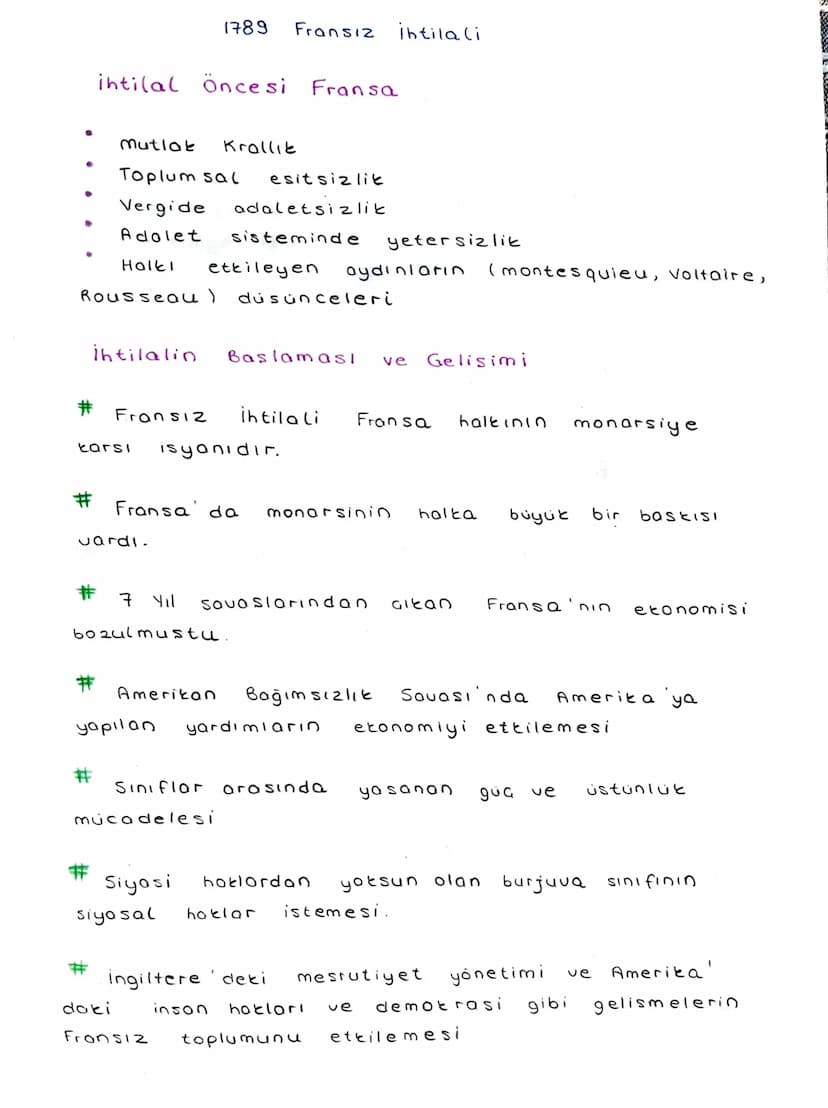 1789 Fransız İhtilali
İhtilal Öncesi Fransa
• Mutlak Krallık
• Toplumsal esitsizlik
• Vergide adaletsizlik
• Adalet sisteminde yetersizlik
• Halkı etkileyen aydınların (montesquieu, Voltaire,
Rousseau) düsünceleri
İhtilalin Baslaması ve Gelisimi
# Fransız İhtilali Fransa halkının monarsiye
karsı isyanıdır.
# Fransa'da monarsinin halka büyük bir baskısı
vardı.
# 7 Yıl savaslarından cıkan Fransa'nın ekonomisi
bozulmustu.
# Amerikan Bağımsızlık Savası'nda Amerika'ya
yapılan yardımların ekonomiyi etkilemesi
# Sınıflar arasında yasanan güc ve üstünlük
mücadelesi
# Siyasi haklardan yoksun olan burjuva sınıfının
siyasal haklar istemesi.
# İngiltere'deki mesrutiyet yönetimi ve Amerika'
daki insan hakları ve demokrasi gibi gelismelerin
Fransız toplumunu etkilemesi